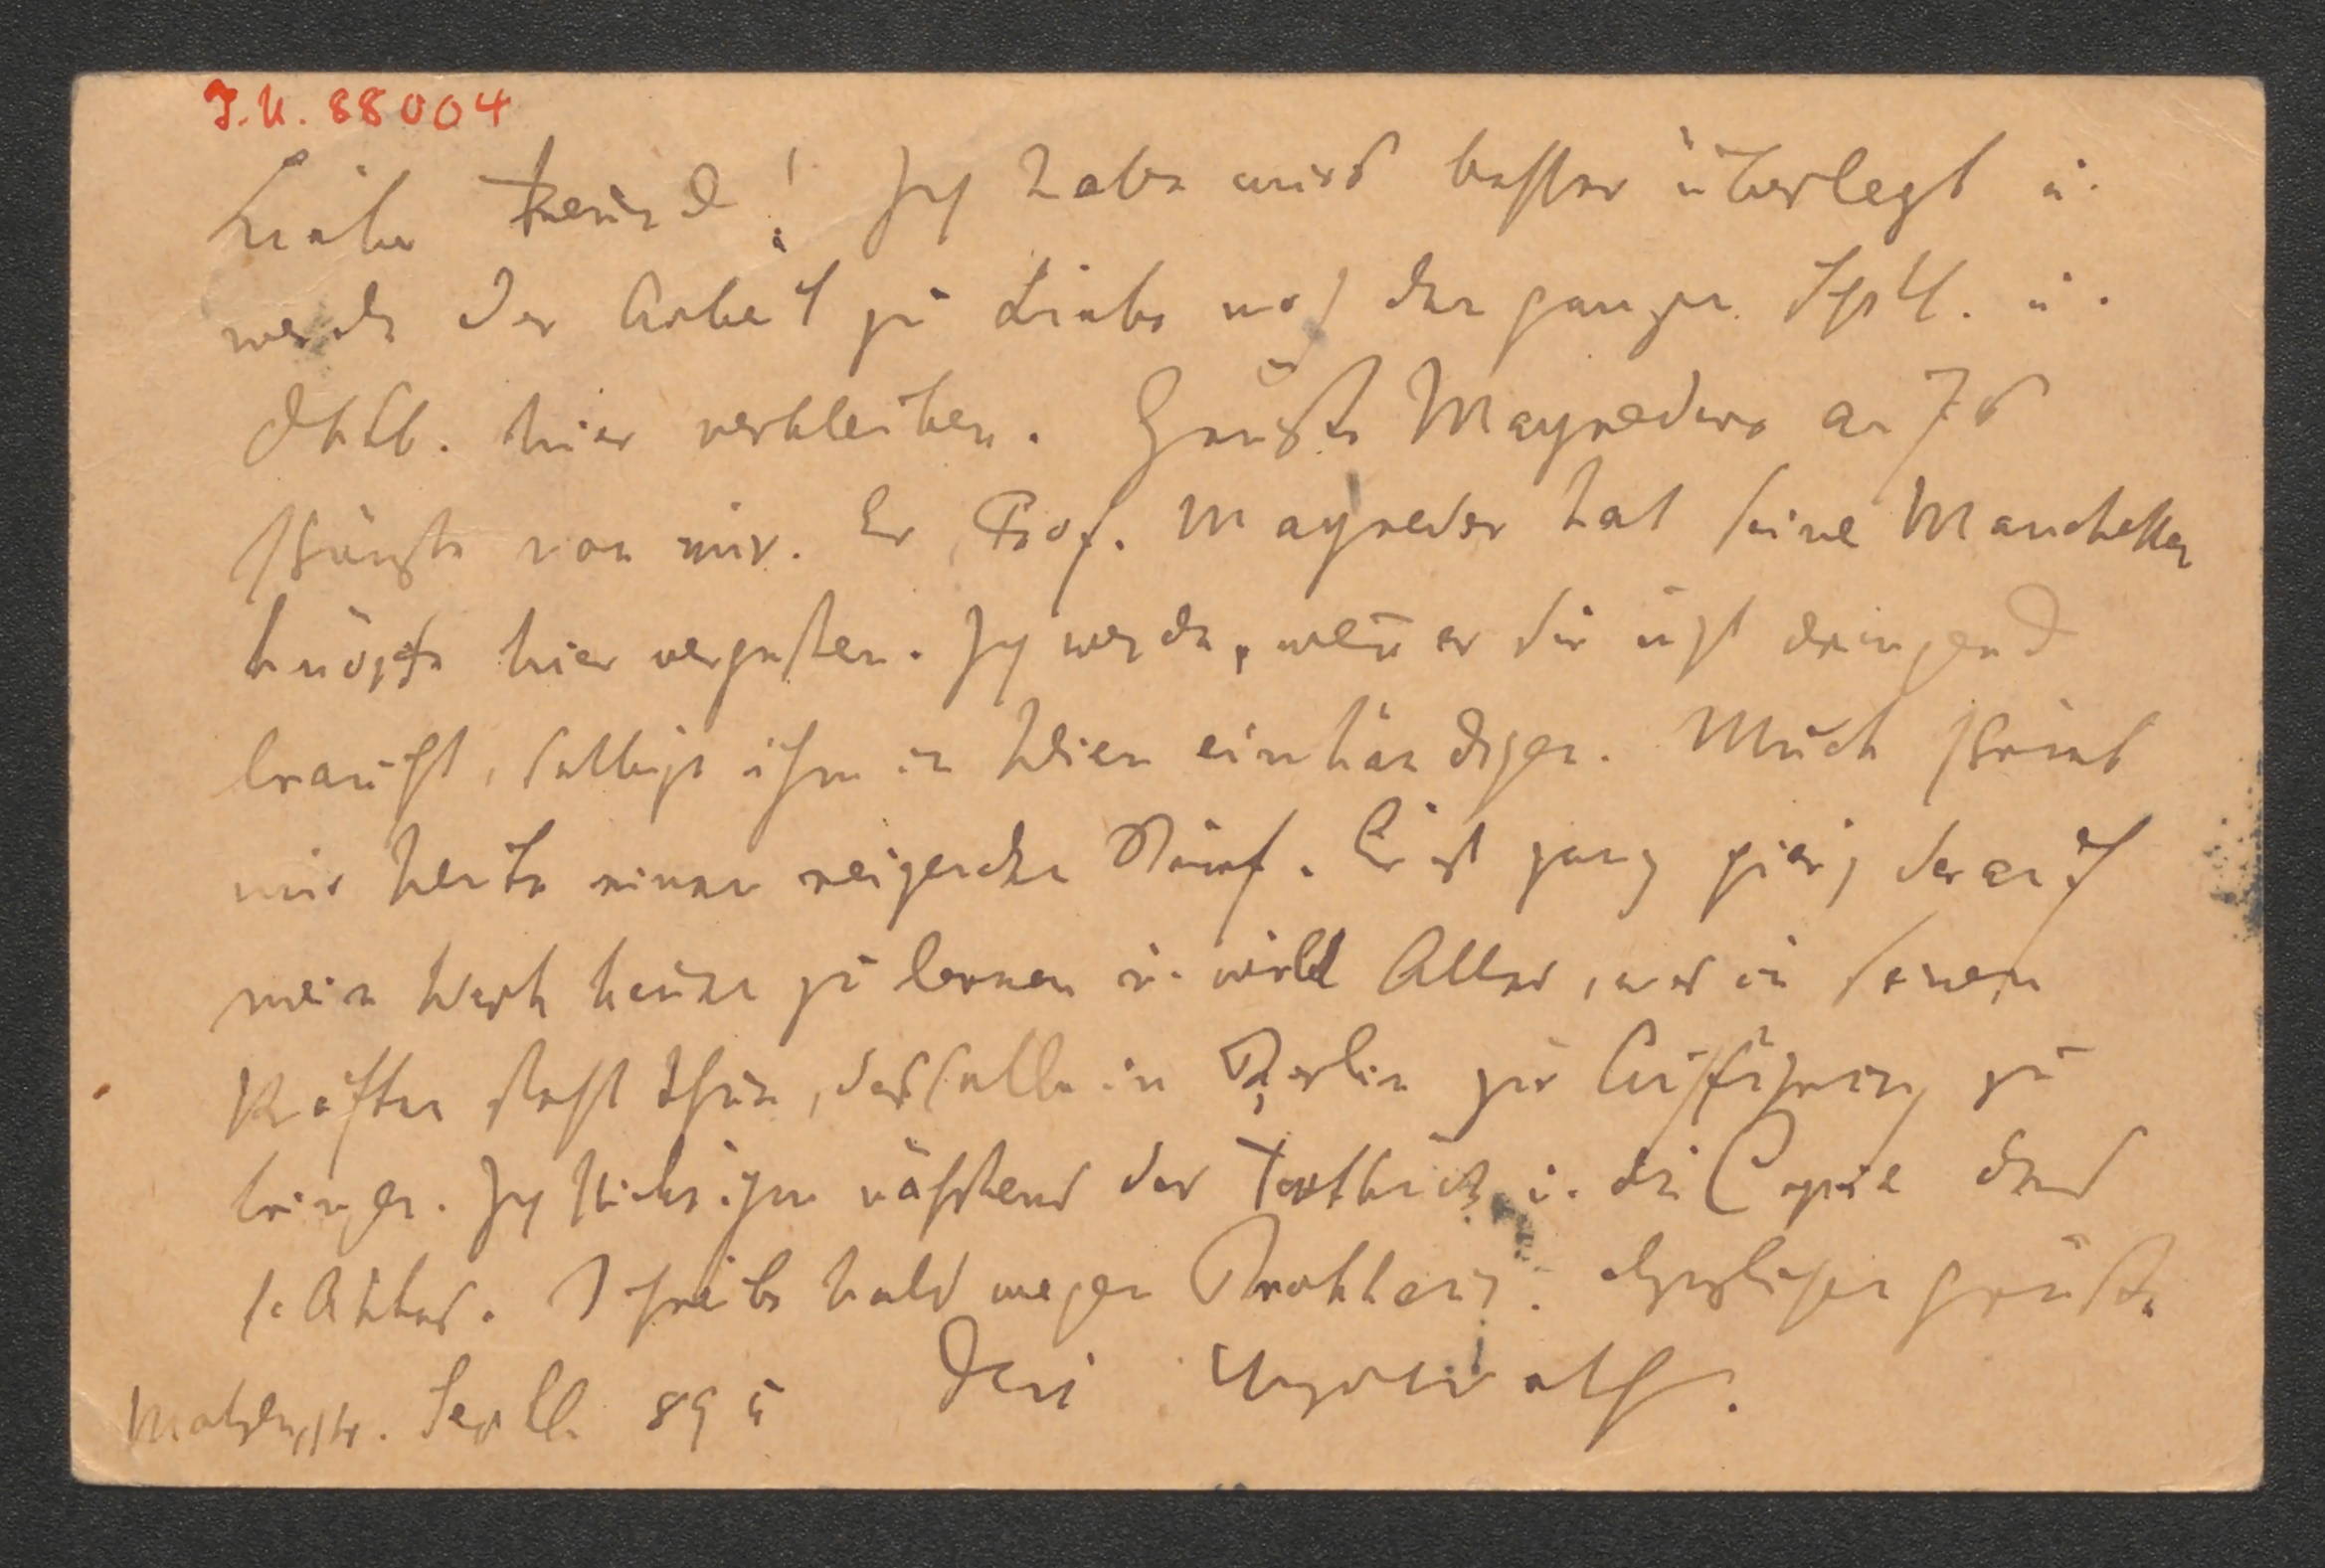 I.N. 88004
Lieber Freund! Ich habe mirs besser überlegt u.
werde der Arbeit zu Liebe noch den ganzen Sept. u.
Oktb. hier verbleiben. Grüße Mayreders aufs
schönste von mir. Er, Prof. Mayreder hat seine Manchetten
knöpfe hier vergessen. Ich werde, wen̄ er sie nicht dringend
braucht, selbige ihm in Wien einhändigen. Muck schrieb
mir heute einen reizenden Brief. Er ist ganz gierig darauf
mein Werk kennen zu lernen u. wird Alles, was in seinen
Kräften steht thun, dasselbe in Berlin zur Aufführung zu
bringen. Ich schicke ihm nächstens das Textbuch u. die Copie des
1. Aktes. Schreibe bald wegen Brockhaus. Herzlichen Grüße
Dein Hugo Wolf.
Matzen, Sept. 895